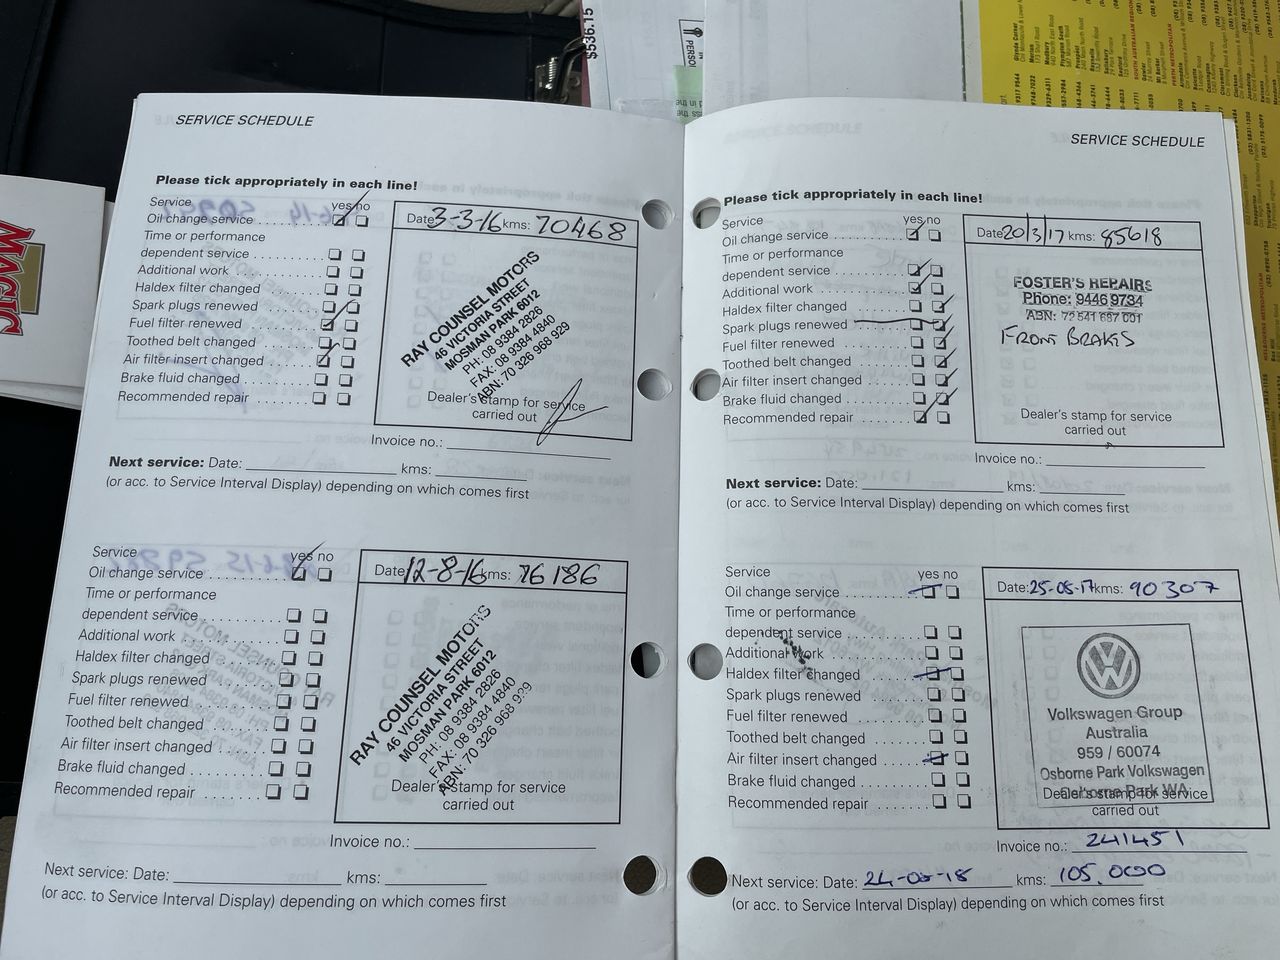 SERVICE SCHEDULE
Please tick appropriately in each line!
Service yes no
Oil change service
Time or performance
dependent service
Additional work
Haldex filter changed
Spark plugs renewed
Fuel filter renewed
Toothed belt changed
Air filter insert changed
Brake fluid changed
Recommended repair
Date 3-3-16 kms: 70468
RAY COUNSEL MOTORS
46 VICTORIA STREET
MOSMAN PARK 6012
PH: 08 9384 2826
FAX: 08 9384 4840
ABN: 70 326 968 929
Dealer's stamp for service
carried out
Invoice no.:
Next service: Date: kms:
(or acc. to Service Interval Display) depending on which comes first
Service yes no
Oil change service
Time or performance
dependent service
Additional work
Haldex filter changed
Spark plugs renewed
Fuel filter renewed
Toothed belt changed
Air filter insert changed
Brake fluid changed
Recommended repair
Date 12-8-16 kms: 76186
RAY COUNSEL MOTORS
46 VICTORIA STREET
MOSMAN PARK 6012
PH: 08 9384 2826
FAX: 08 9384 4840
ABN: 70 326 968 929
Dealer's stamp for service
carried out
Invoice no.:
Next service: Date: kms:
(or acc. to Service Interval Display) depending on which comes first
SERVICE SCHEDULE
Please tick appropriately in each line!
Service yes no
Oil change service
Time or performance
dependent service
Additional work
Haldex filter changed
Spark plugs renewed
Fuel filter renewed
Toothed belt changed
Air filter insert changed
Brake fluid changed
Recommended repair
Date 20/3/17 kms: 85618
FOSTER'S REPAIRS
Phone: 9446 9734
ABN: 72 541 697 001
FRONT BRAKES
Dealer's stamp for service
carried out
Invoice no.:
Next service: Date: kms:
(or acc. to Service Interval Display) depending on which comes first
Service yes no
Oil change service
Time or performance
dependent service
Additional work
Haldex filter changed
Spark plugs renewed
Fuel filter renewed
Toothed belt changed
Air filter insert changed
Brake fluid changed
Recommended repair
Date: 25-05-17 kms: 90307
Volkswagen Group
Australia
959 / 60074
Osborne Park Volkswagen
Osborne Park WA
Dealer's stamp for service
carried out
Invoice no.: 241451
Next service: Date: 24-05-18 kms: 105.000
(or acc. to Service Interval Display) depending on which comes first
$536.15
MAGIC